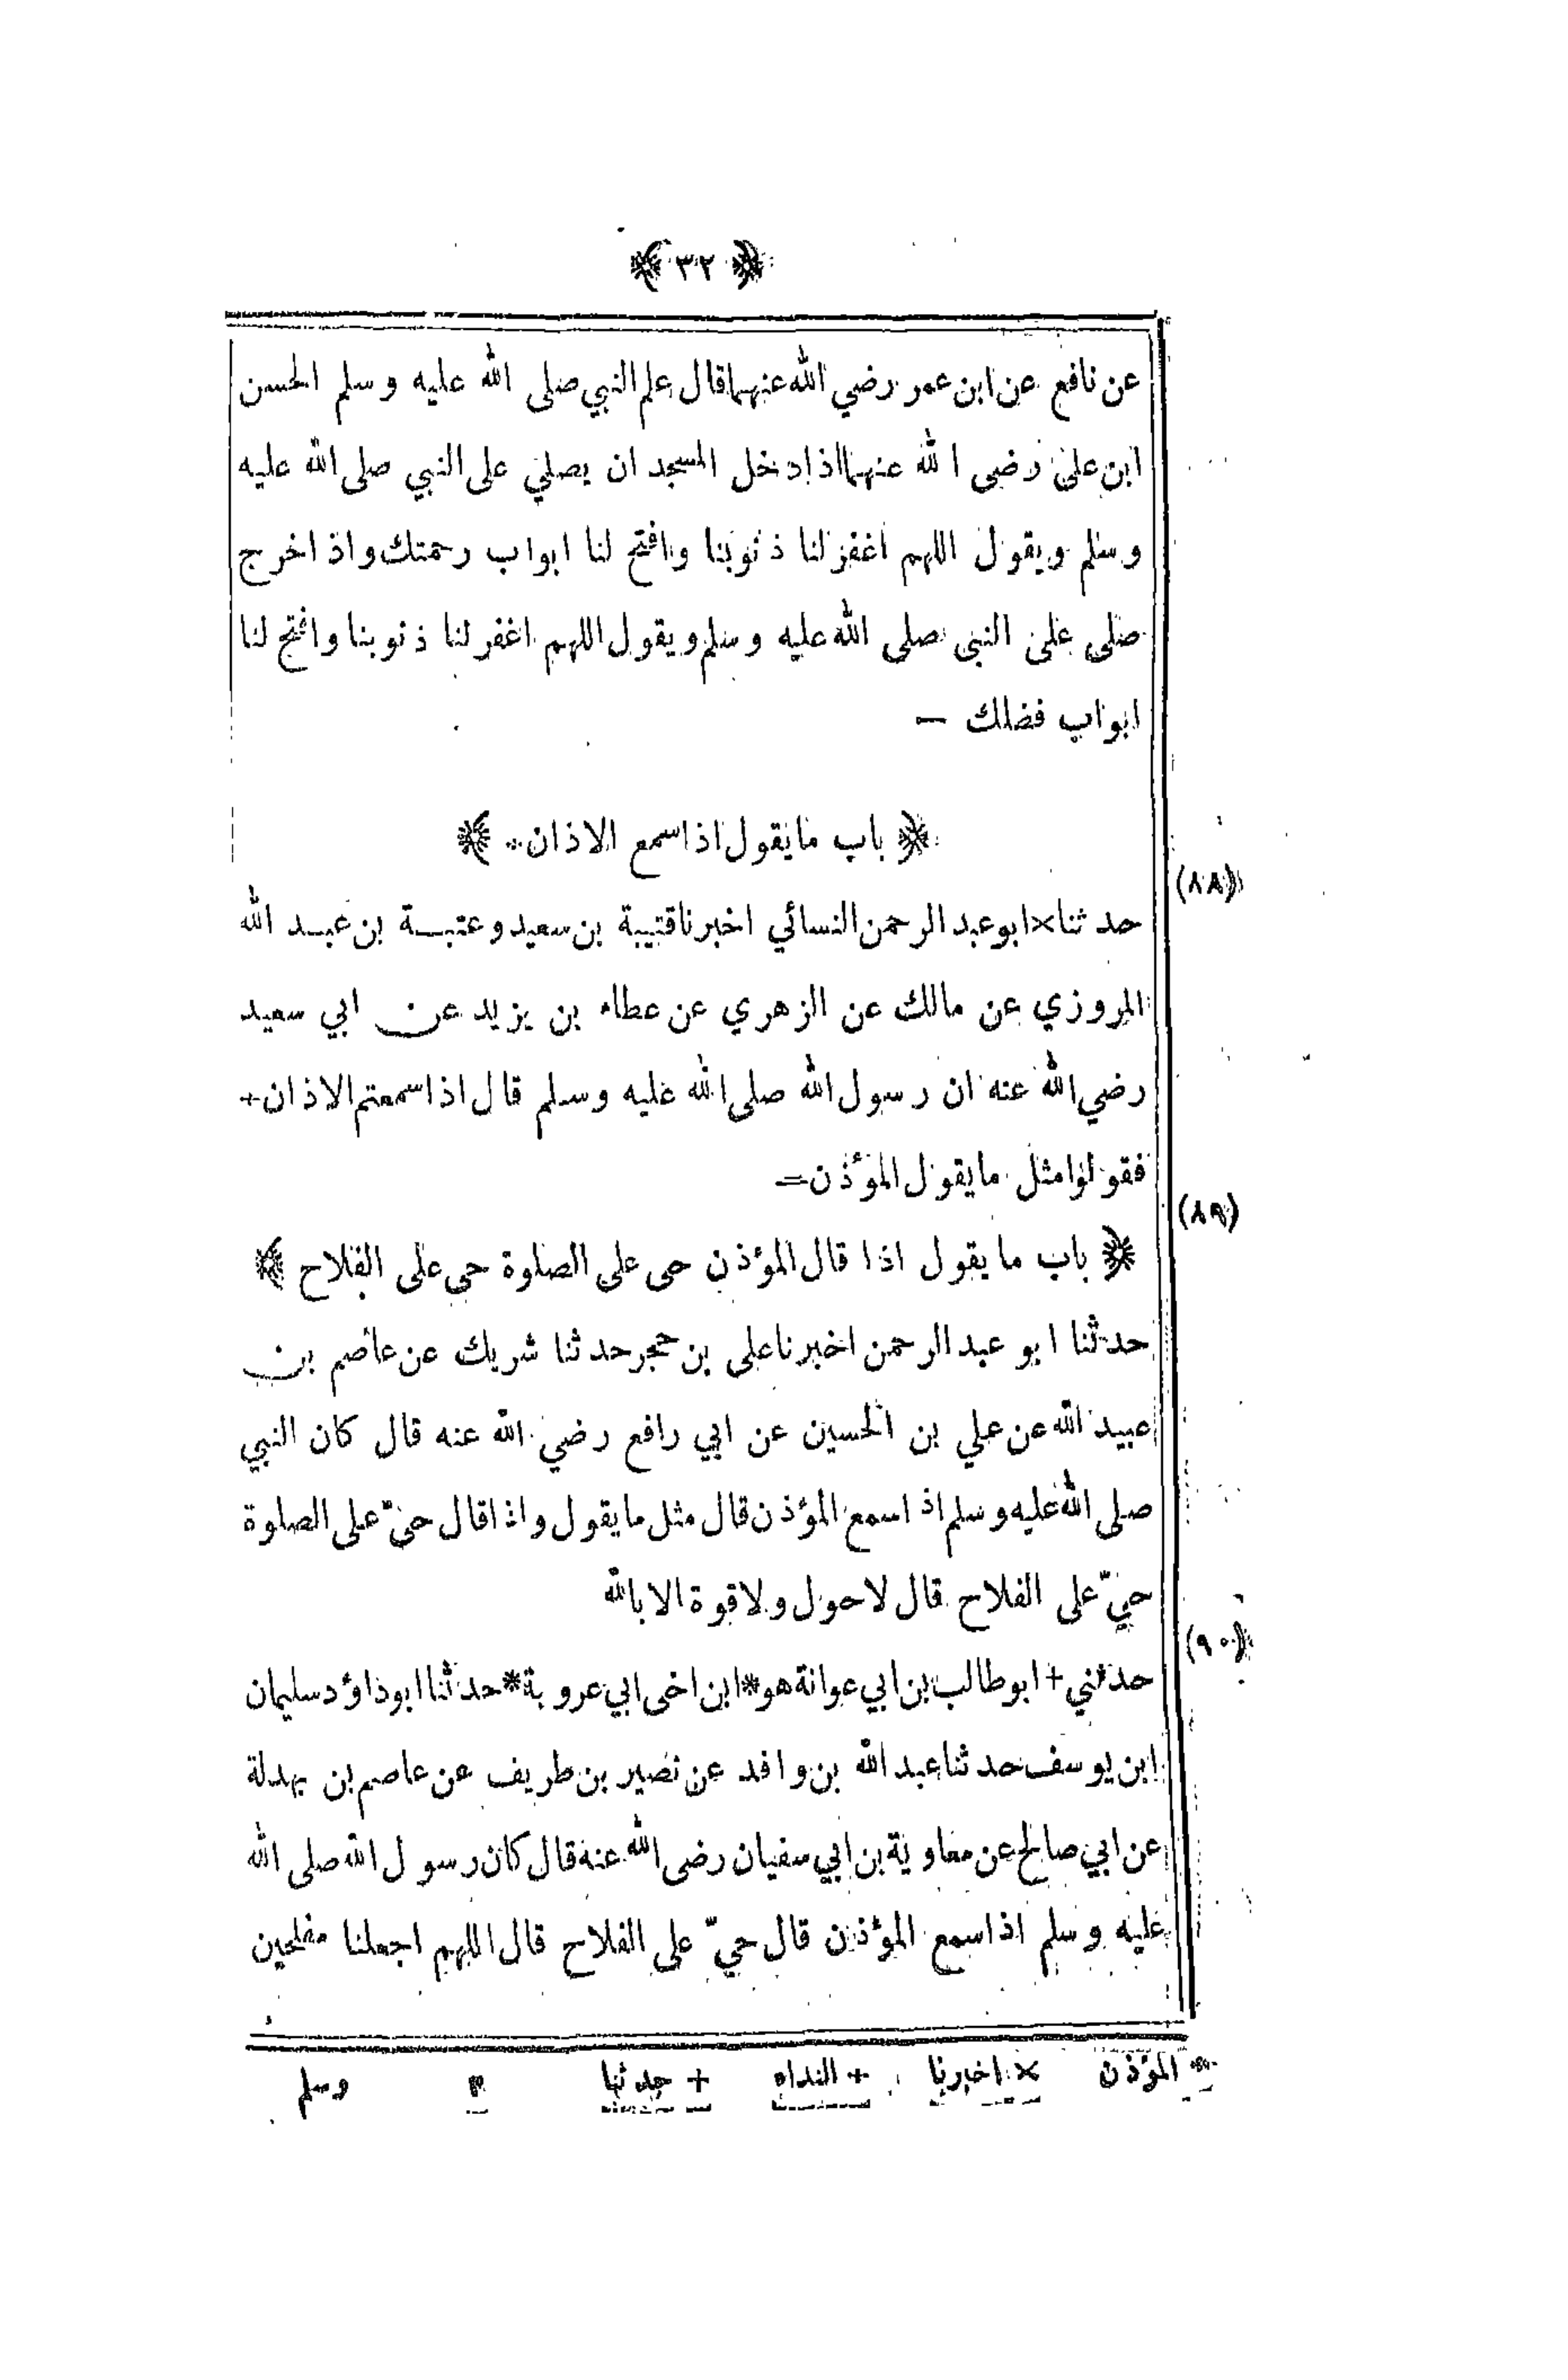 ﴿ ٣٢ ﴾
عن نافع عن ابن عمر رضي الله عنهما قال علم النبي صلى الله عليه وسلم الحسن
ابن على رضى الله عنهما اذا دخل المسجد ان يصلي على النبي صلى الله عليه
وسلم ويقول اللهم اغفر لنا ذنوبنا وافتح لنا ابواب رحمتك واذا خرج
صلى على النبى صلى الله عليه وسلم ويقول اللهم اغفر لنا ذنوبنا وافتح لنا
ابواب فضلك —
﴿ باب ما يقول اذا سمع الاذان ﴾
(٨٨)
حدثنا× ابو عبد الرحمن النسائي اخبرنا قتيبة بن سعيد وعتبة بن عبد الله
المروزي عن مالك عن الزهري عن عطاء بن يزيد عن ابي سعيد
رضي الله عنه ان رسول الله صلى الله عليه وسلم قال اذا سمعتم الاذان+
فقولوا مثل ما يقول المؤذن=
(٨٩)
﴿ باب ما يقول اذا قال المؤذن حى على الصلوة حى على الفلاح ﴾
حدثنا ابو عبد الرحمن اخبرنا على بن حجر حدثنا شريك عن عاصم بن
عبيد الله عن علي بن الحسين عن ابي رافع رضي الله عنه قال كان النبي
صلى الله عليه وسلم اذا سمع المؤذن قال مثل ما يقول واذا قال حيّ على الصلوة
حيّ على الفلاح قال لاحول ولاقوة الا بالله
(٩٠)
حدثني+ ابو طالب بن ابي عوانة هو* ابن اخى ابي عروبة* حدثنا ابو داؤد سليمان
ابن يوسف حدثنا عبد الله بن وافد عن نصير بن طريف عن عاصم بن بهدلة
عن ابي صالح عن معاوية بن ابي سفيان رضى الله عنه قال كان رسول الله صلى الله
عليه وسلم اذا سمع المؤذن قال حيّ على الفلاح قال اللهم اجعلنا مفلحين
= المؤذن × اخبرنا + النداء + حدثنا ٣ وسلم